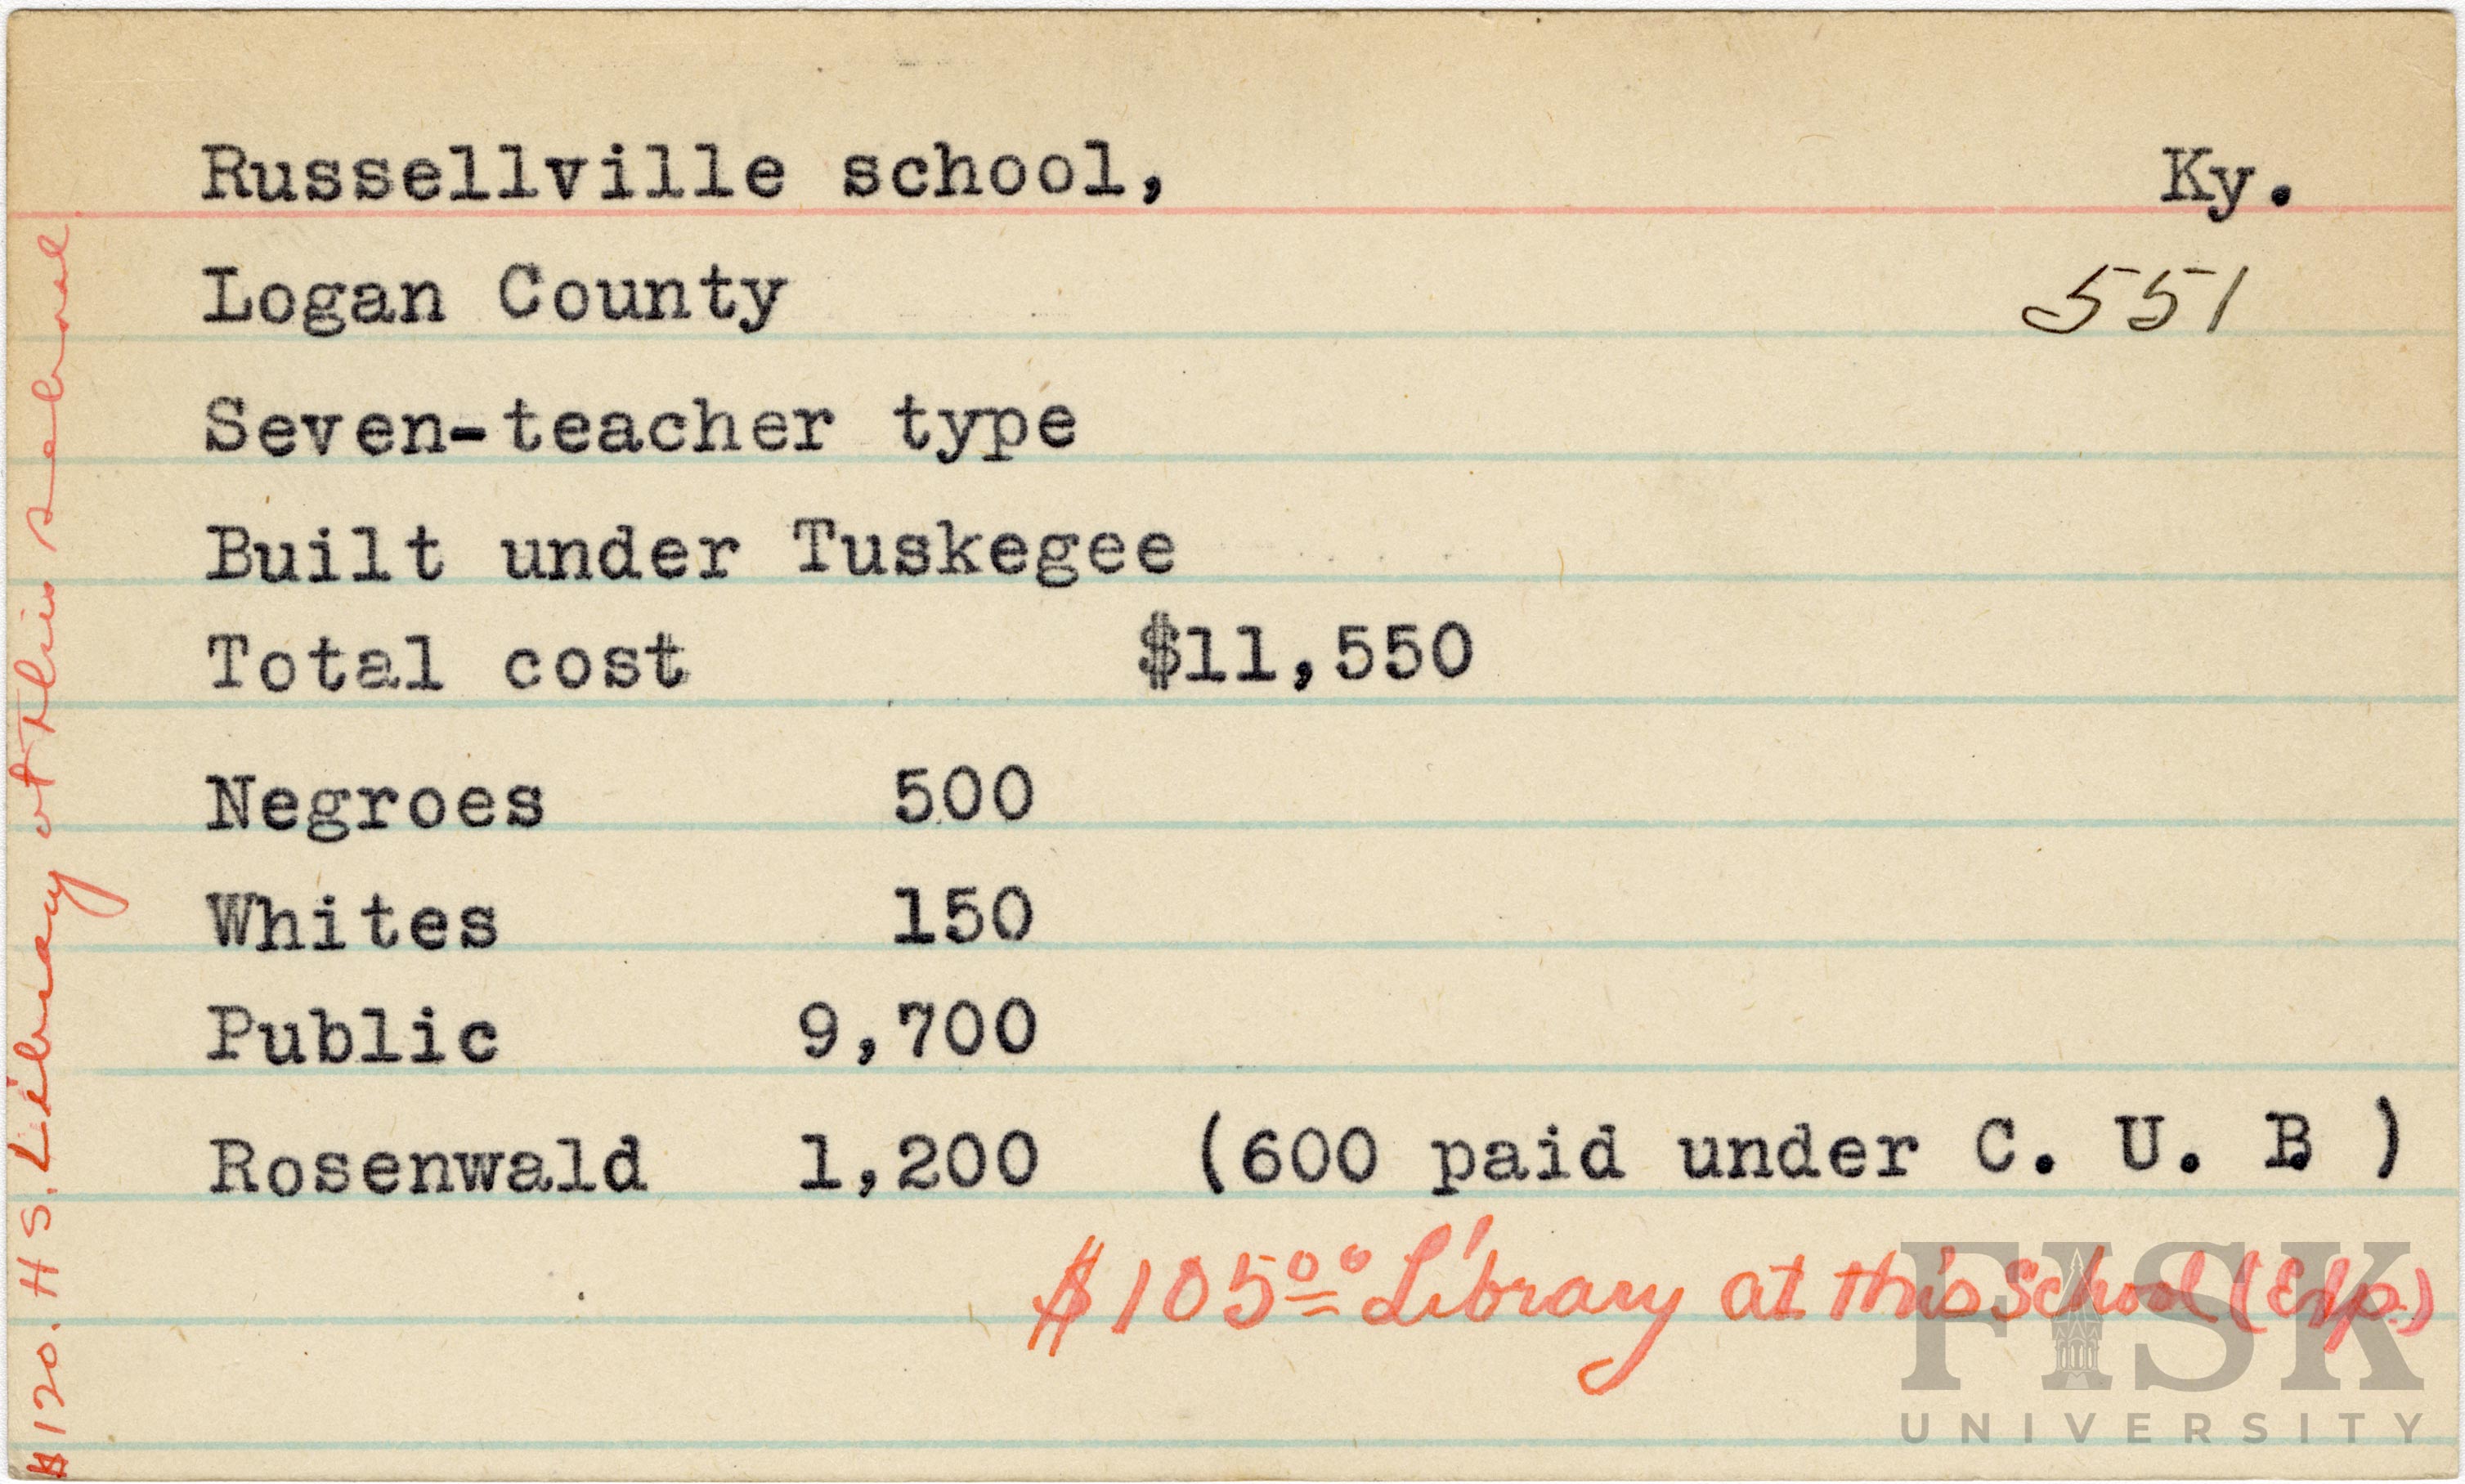 Russellville school, Ky.
Logan County 551
Seven-teacher type
Built under Tuskegee
Total cost $11,550
Negroes 500
Whites 150
Public 9,700
Rosenwald 1,200 (600 paid under C. U. B )
$105⁰⁰ Library at this School (Elp.)
$120. H S. Library at this school
FISK
UNIVERSITY